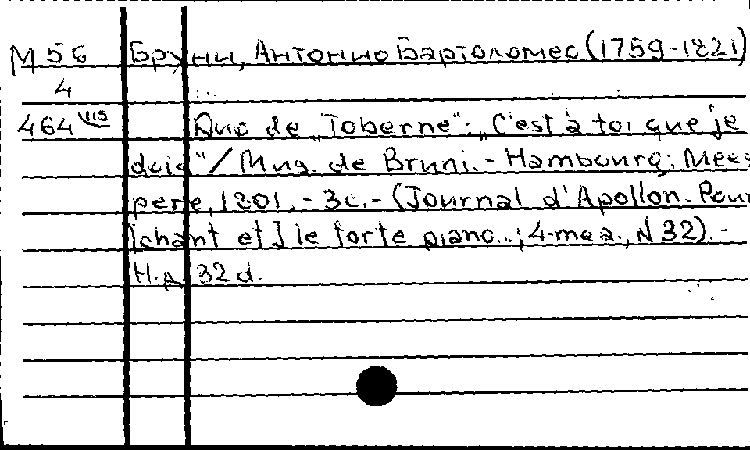 М 56 Бруни, Антонио Бартоломео (1759-1821)
4
464 VIS Duo de „Toberne": „C'est à toi que je
dois" / Mus. de Bruni. - Hambourg: Mees
pere, 1801. - 3c. - (Journal d'Apollon. Pour
[chant et] le forte piano...; 4-me a., N 32). -
Н.д. 32 d.